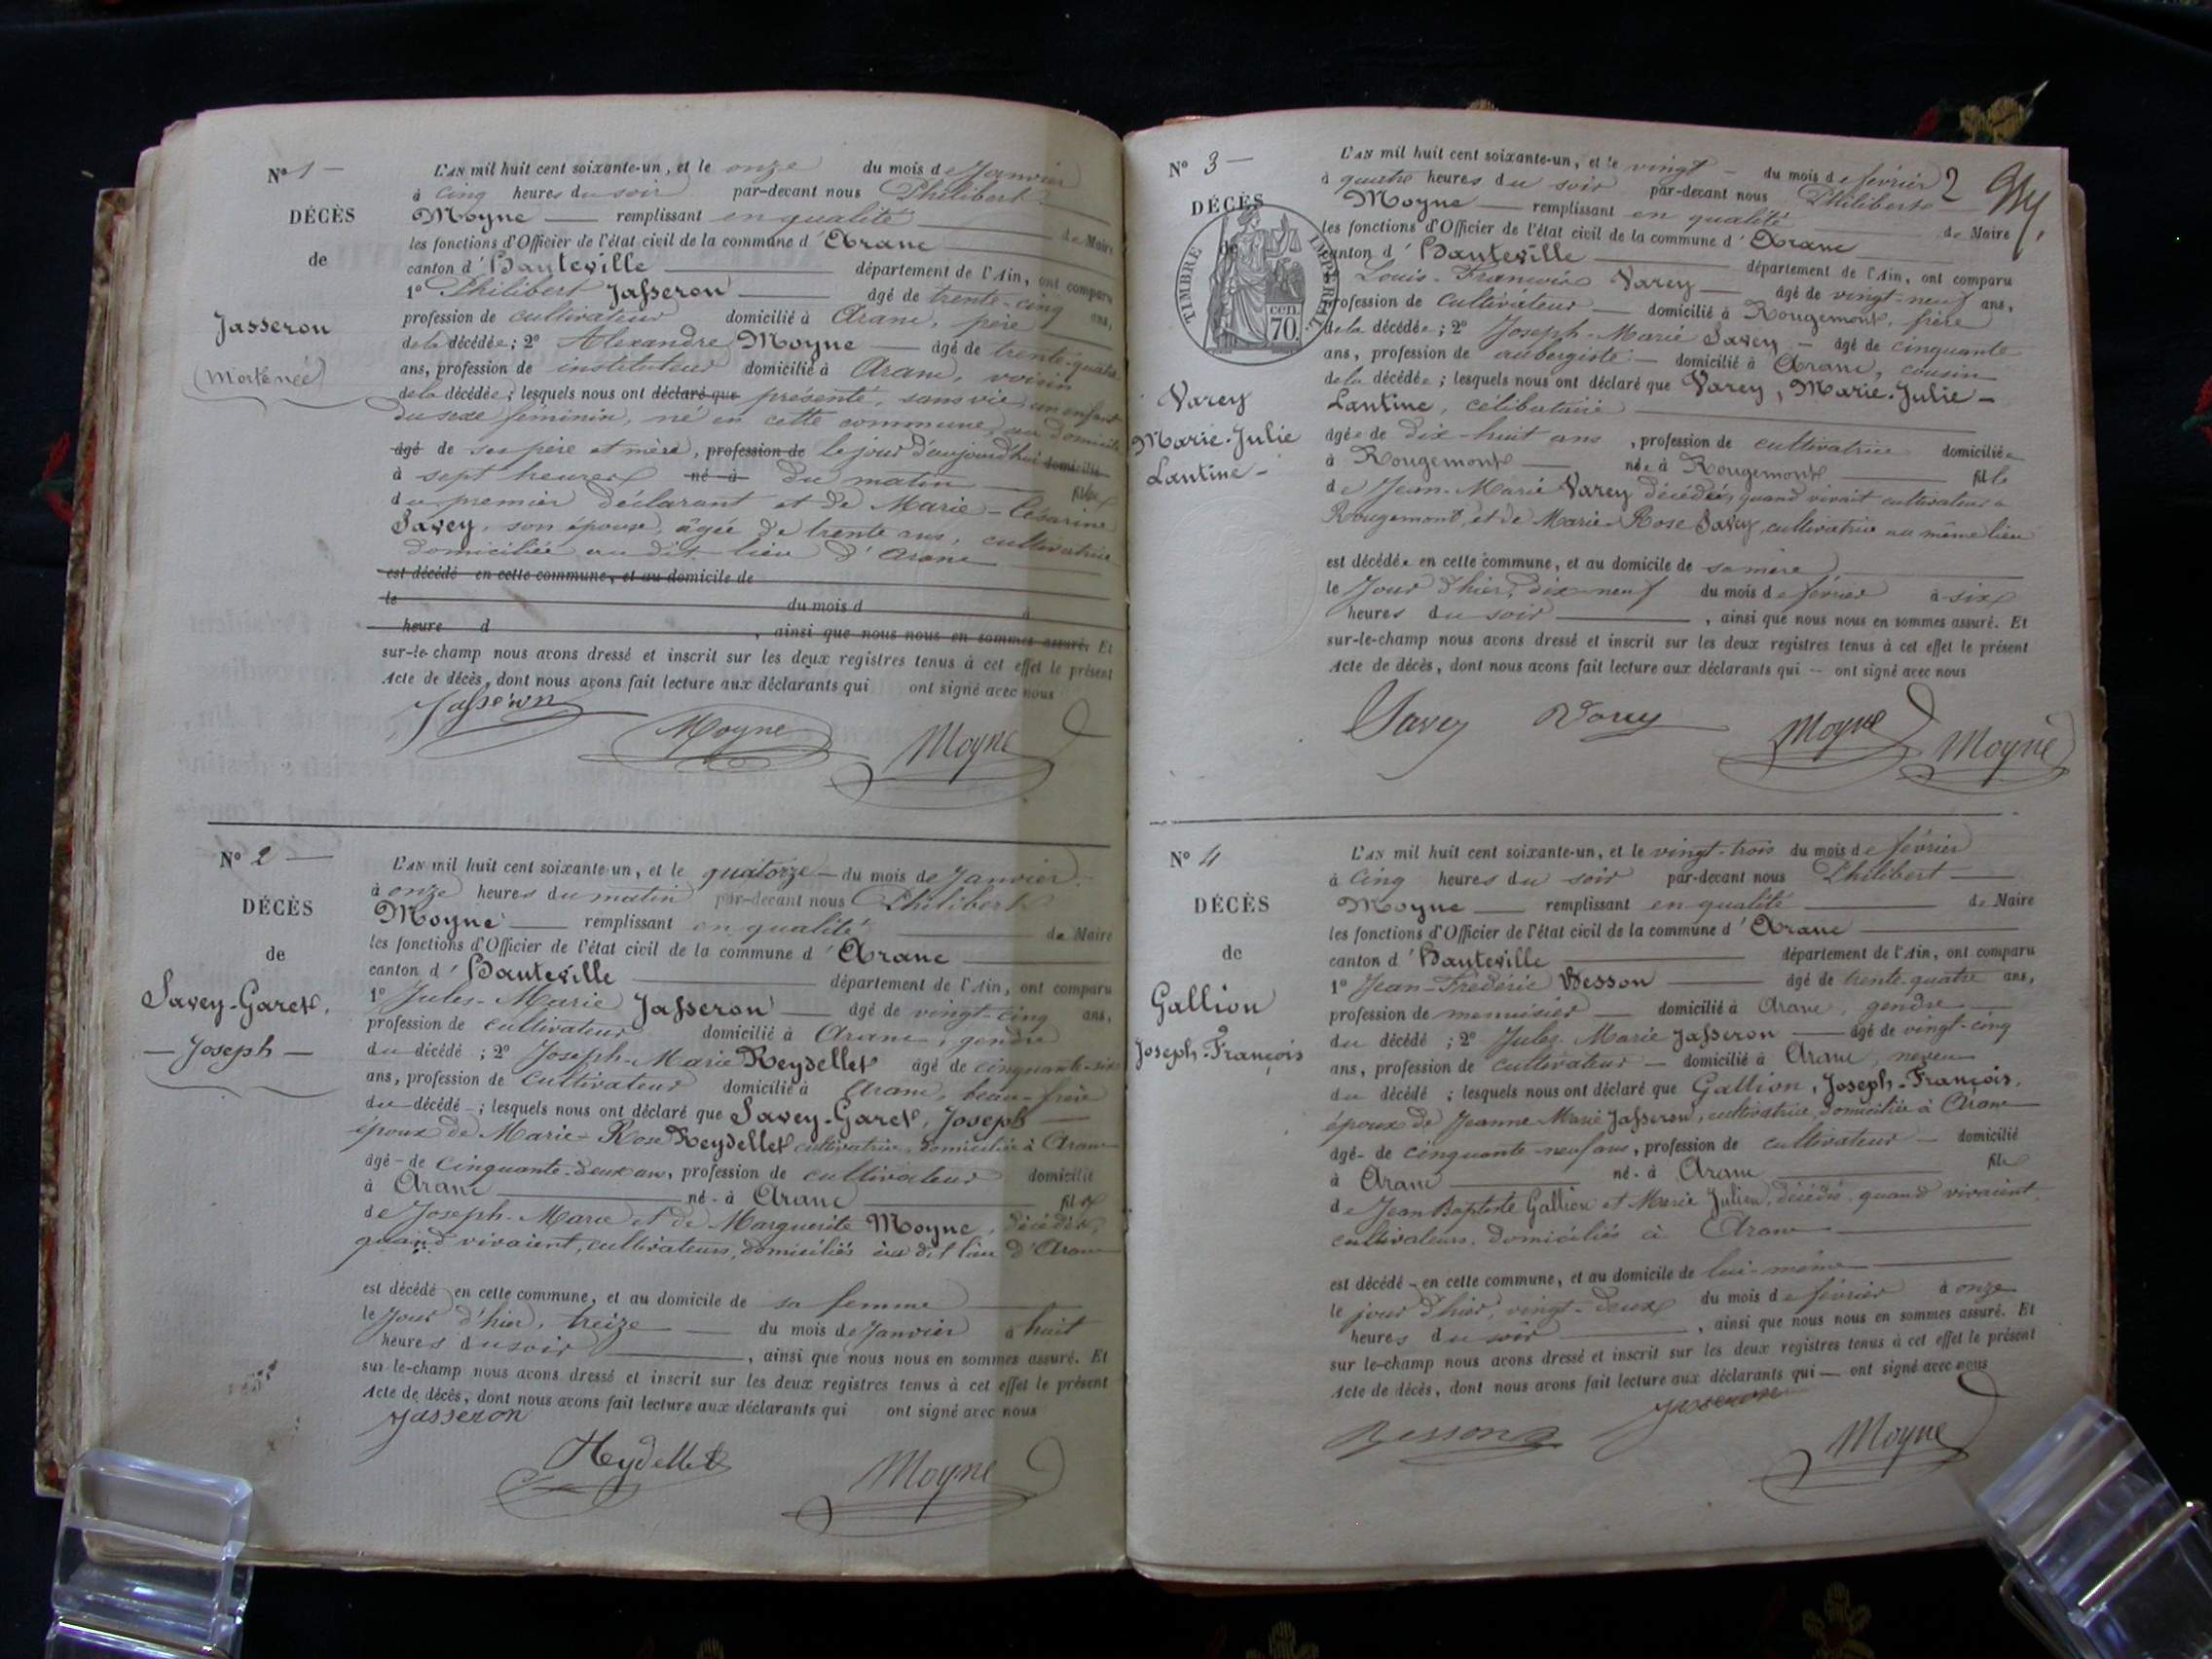 N° 1 —
DÉCÈS
de
Jasseron
(Mortenée)
L'AN mil huit cent soixante-un, et le onze du mois de Janvier
à cinq heures du soir par-devant nous Philibert
Moyne — remplissant en qualité de Maire
les fonctions d'Officier de l'état civil de la commune d'Aranc
canton d'Hauteville département de l'Ain, ont comparu
1° Philibert Jasseron âgé de trente-cinq ans,
profession de cultivateur domicilié à Aranc, père
de la décédée; 2° Alexandre Moyne — âgé de trente-quatre
ans, profession de instituteur domicilié à Aranc, voisin
de la décédée; lesquels nous ont déclaré que présenté, sans vie, un enfant
du sexe féminin, né en cette commune, au domicile
âgé de ses père et mère, profession de le jour d'aujourd'hui domicilié
à sept heures né à du matin fille
du premier déclarant et de Marie-Césarine
Savey, son épouse, âgée de trente ans, cultivatrice
domiciliée au dit lieu d'Aranc
est décédé en cette commune, et au domicile de
le du mois d à
heure d , ainsi que nous nous en sommes assuré. Et
sur-le-champ nous avons dressé et inscrit sur les deux registres tenus à cet effet le présent
Acte de décès, dont nous avons fait lecture aux déclarants qui ont signé avec nous
Jasseron Moyne Moyne
N° 2 —
DÉCÈS
de
Savey-Garet,
— Joseph —
L'AN mil huit cent soixante-un, et le quatorze — du mois de Janvier
à onze heures du matin par-devant nous Philibert
Moyne — remplissant en qualité de Maire
les fonctions d'Officier de l'état civil de la commune d'Aranc
canton d'Hauteville département de l'Ain, ont comparu
1° Jules-Marie Jasseron — âgé de vingt-cinq ans,
profession de cultivateur domicilié à Aranc, gendre
du décédé; 2° Joseph-Marie Reydellet âgé de cinquante-six
ans, profession de cultivateur domicilié à Aranc, beau-frère
du décédé; lesquels nous ont déclaré que Savey-Garet, Joseph
époux de Marie-Rose Reydellet cultivatrice, domiciliée à Aranc
âgé de cinquante-deux ans, profession de cultivateur domicilié
à Aranc né à Aranc fils
de Joseph-Marie et de Marguerite Moyne, décédés,
quand vivaient, cultivateurs, domiciliés au dit lieu d'Aranc
est décédé en cette commune, et au domicile de sa femme
le jour d'hier, treize — du mois de Janvier à huit
heures du soir , ainsi que nous nous en sommes assuré. Et
sur-le-champ nous avons dressé et inscrit sur les deux registres tenus à cet effet le présent
Acte de décès, dont nous avons fait lecture aux déclarants qui ont signé avec nous
Jasseron
Reydellet Moyne
2
N° 3 —
DÉCÈS
de
TIMBRE IMPÉRIAL
70 cen.
Varey
Marie-Julie
Lantine —
L'AN mil huit cent soixante-un, et le vingt — du mois de février
à quatre heures du soir par-devant nous Philibert
Moyne — remplissant en qualité de Maire
les fonctions d'Officier de l'état civil de la commune d'Aranc
canton d'Hauteville département de l'Ain, ont comparu
Louis-François Varey — âgé de vingt-neuf ans,
profession de cultivateur — domicilié à Rougemont, frère
de la décédée; 2° Joseph-Marie Savey — âgé de cinquante
ans, profession de aubergiste — domicilié à Aranc, cousin
de la décédée; lesquels nous ont déclaré que Varey, Marie-Julie-
Lantine, célibataire
âgée de dix-huit ans, profession de cultivatrice domiciliée
à Rougemont — née à Rougemont fille
de Jean-Marie Varey décédé, quand vivait cultivateur à
Rougemont, et de Marie Rose Savey, cultivatrice au même lieu
est décédée en cette commune, et au domicile de sa mère
le Jour d'hier, dix-neuf du mois de février à six
heures du soir , ainsi que nous nous en sommes assuré. Et
sur-le-champ nous avons dressé et inscrit sur les deux registres tenus à cet effet le présent
Acte de décès, dont nous avons fait lecture aux déclarants qui — ont signé avec nous
Savey Varey Moyne Moyne
N° 4
DÉCÈS
de
Gallion
Joseph-François
L'AN mil huit cent soixante-un, et le vingt-trois du mois de février
à cinq heures du soir par-devant nous Philibert —
Moyne — remplissant en qualité de Maire
les fonctions d'Officier de l'état civil de la commune d'Aranc
canton d'Hauteville département de l'Ain, ont comparu
1° Jean-Frédéric Besson âgé de trente-quatre ans,
profession de menuisier — domicilié à Aranc, gendre
du décédé; 2° Jules-Marie Jasseron — âgé de vingt-cinq
ans, profession de cultivateur — domicilié à Aranc, neveu
du décédé; lesquels nous ont déclaré que Gallion, Joseph-François,
époux de Jeanne Marie Jasseron, cultivatrice, domiciliée à Aranc
âgé de cinquante-neuf ans, profession de cultivateur — domicilié
à Aranc né à Aranc fils
de Jean Baptiste Gallion et Marie Julien, décédés, quand vivaient,
cultivateurs, domiciliés à Aranc
est décédé en cette commune, et au domicile de lui-même
le jour d'hier, vingt-deux du mois de février à onze
heures du soir , ainsi que nous nous en sommes assuré. Et
sur le-champ nous avons dressé et inscrit sur les deux registres tenus à cet effet le présent
Acte de décès, dont nous avons fait lecture aux déclarants qui — ont signé avec nous
Besson Jasseron Moyne